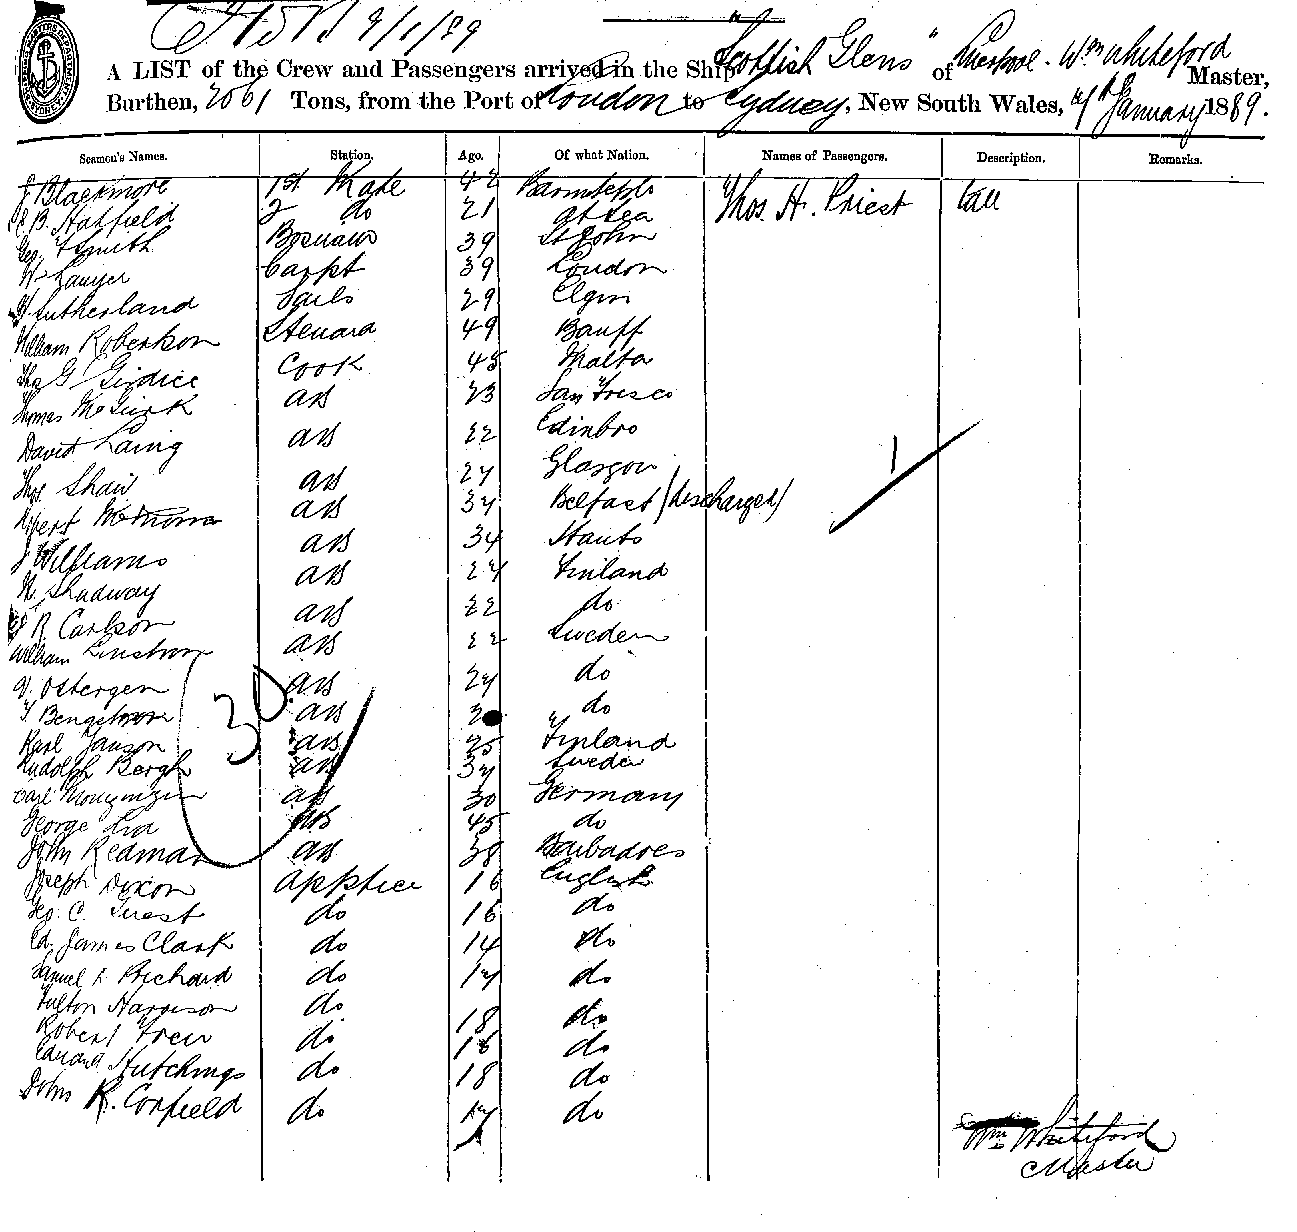 9/1/89
A LIST of the Crew and Passengers arrived in the Ship "Scottish Glens" of Liverpool. Wm Whiteford Master,
Burthen, 2061 Tons, from the Port of London to Sydney, New South Wales, January 1889.
Seamen's Names. Station. Age. Of what Nation. Names of Passengers. Description. Remarks.
J Blackmore 1st Mate 42 Barnstaple Thos. H. Priest tall
B. Hatfield 2 do 21 at sea
Geo. F Smith Bosuain 39 St John
W Sawyer Carpt 39 London
Sutherland Sails 29 Elgin
William Robertson Steward 49 Banff
Thos G Girdice Cook 45 Malta
Thomas McGurk AB 23 San Frisco
David Laing AB 22 Edinbro
Thos Shaw AB 27 Glasgow
Robert AB 37 Belfast (discharged)
J Williams AB 34 Hants
Shadway AB 27 Finland
R. Carlson AB 22 do
William Linstrom AB 22 Sweden
Ostergen AB 27 do
Bengstrom AB 2 do
Karl Janson AB 25 Finland
Rudolph Bergh AB 37 Sweden
Carl AB 30 Germany
George Lia AB 45 do
John Redman AB 38 Barbadoes
Joseph Dixon Apptice 16 English
Geo. C. Guest do 16 do
Ed. James Clark do 14 do
Samuel Prichard do 17 do
Fulton Harrison do 18 do
Robert Frew do 16 do
Edward Hutchings do 18 do
John R. Corfield do 17 do
30
1
Wm Whiteford
Master